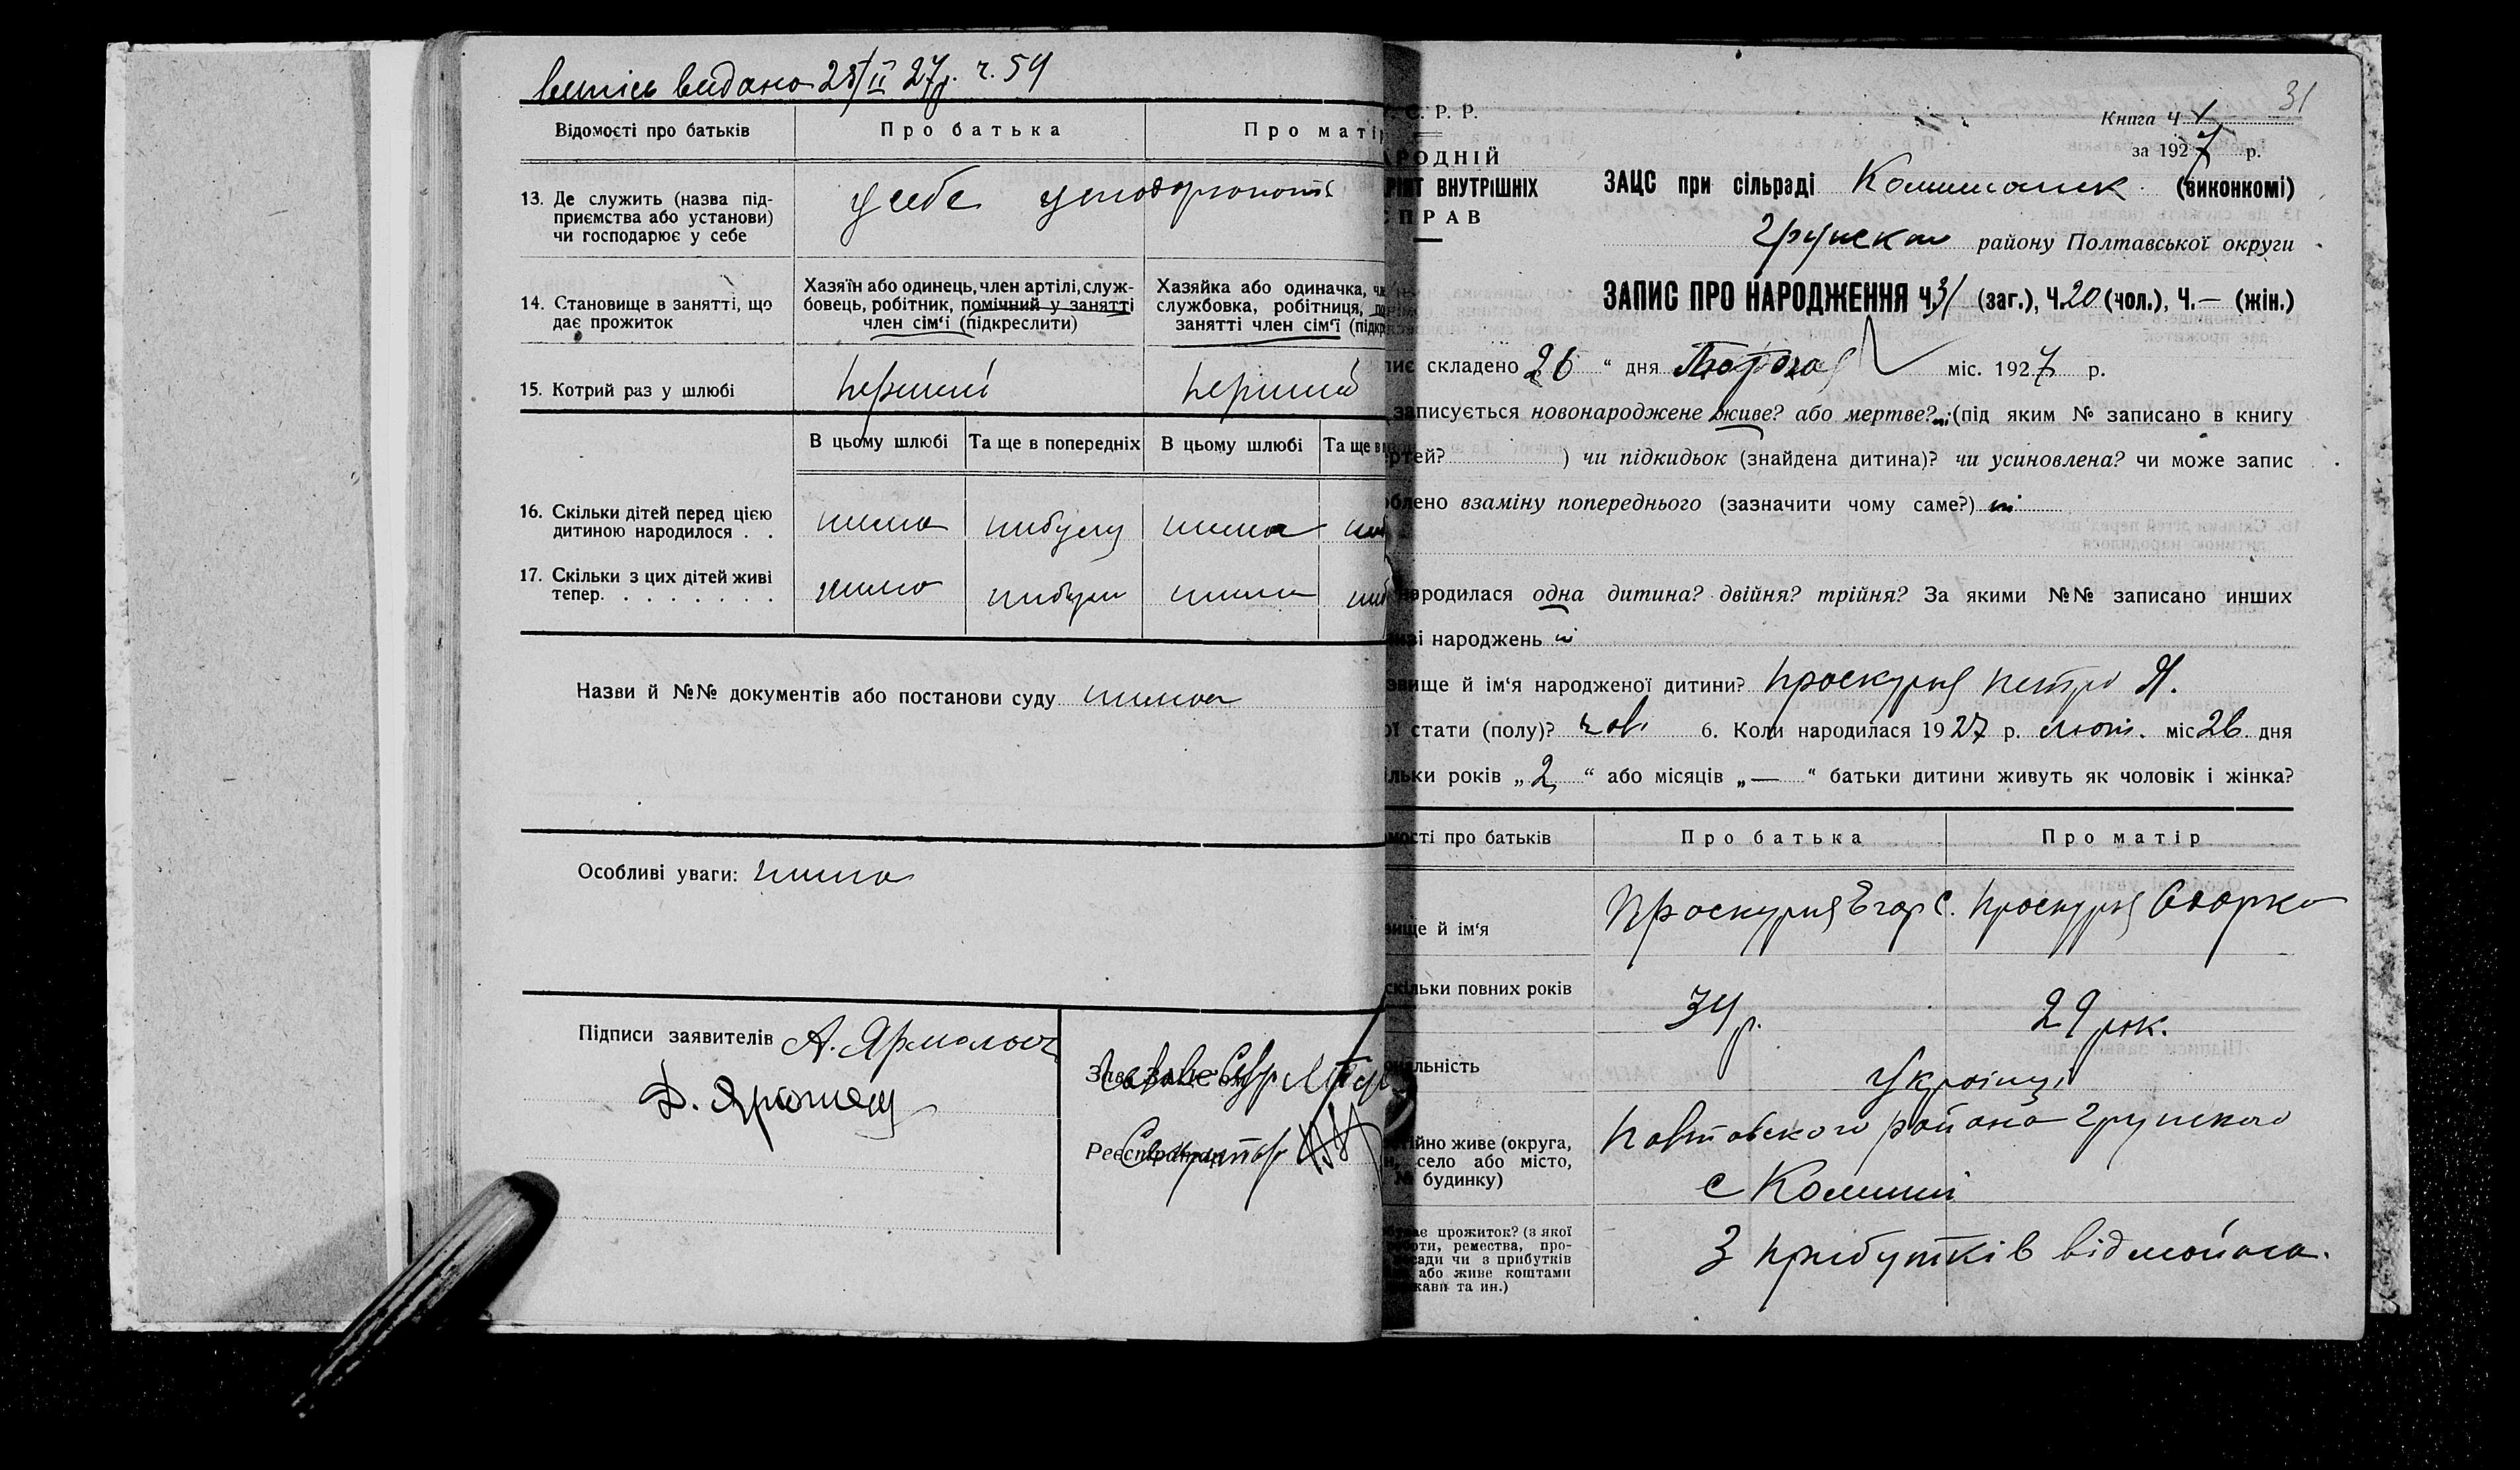 видано 25/II 27р. ч. 59
Відомості про батьків
Про батька
Про матір
13. Де служить (назва під-
приємства або установи)
чи господарює у себе
у себе
14. Становище в занятті, що
дає прожиток
Хазяїн або одинець, член артілі, служ-
бовець, робітник, помічний у занятті
член сім'ї (підкреслити)
Хазяйка або одиначка, чл
службовка, робітниця, по
занятті член сім'ї (підкр
15. Котрий раз у шлюбі
перший
перший
В цьому шлюбі
Та ще в попередніх
В цьому шлюбі
Та ще в
16. Скільки дітей перед цією
дитиною народилося . .
нима
нибуту
нима
17. Скільки з цих дітей живі
тепер. . . . . . . .
нима
нибули
нима
Назви й №№ документів або постанови суду нима
Особливі уваги: нима
Підписи заявителів А.
Д.
Зав. ЗАЦС'ом
Реєстратор
Секретар
31
С. Р. Р.
РОДНІЙ
РІЯТ ВНУТРІШНІХ
ПРАВ
Книга Ч 1
за 1927 р.
ЗАЦС при сільраді (виконкомі)
Грунском району Полтавської округи
ЗАПИС ПРО НАРОДЖЕННЯ Ч. 31 (заг.), Ч. 20 (чол.), Ч. — (жін.)
складено 26 “ дня Лютого міс. 1927 р.
записується новонароджене живе? або мертве? (під яким № записано в книгу
ртей? ) чи підкидьок (знайдена дитина)? чи усиновлена? чи може запис
блено взаміну попереднього (зазначити чому саме?) ні
народилася одна дитина? двійня? трійня? За якими №№ записано инших
зі народжень ні
звище й ім'я народженої дитини? Проскурня Петро Я.
ої стати (полу)? чов. 6. Коли народилася 1927 р. лют. міс 26 дня
льки років „ 2 “ або місяців „ — “ батьки дитини живуть як чоловік і жінка?
мості про батьків
Про батька
Про матір
вище й ім'я
Проскурня Егор С.
Проскурня Одарка
скільки повних років
34 р.
29 рок.
нальність
Українці
ійно живе (округа,
н, село або місто,
№ будинку)
Повтавского района Грунского
с Комиші
ває прожиток? (з якої
оти, ремества, про-
сади чи з прибутків
або живе коштами
жави та ин.)
З прибутків від майна.